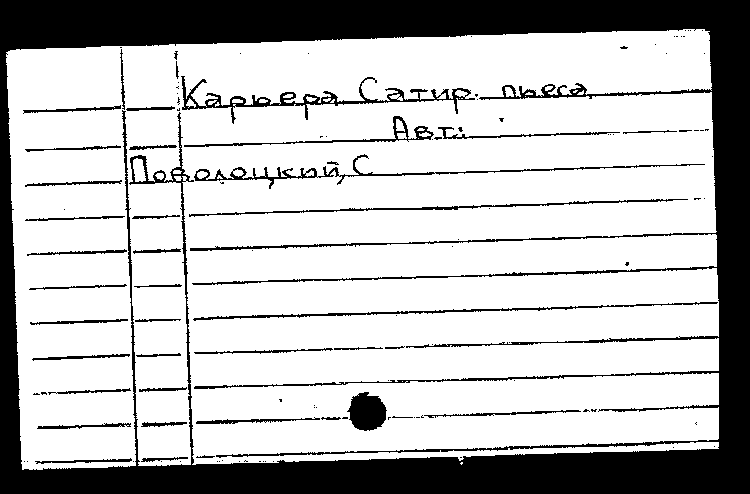 Карьера Сатир. пьеса
Авт:
Поволоцкий, С